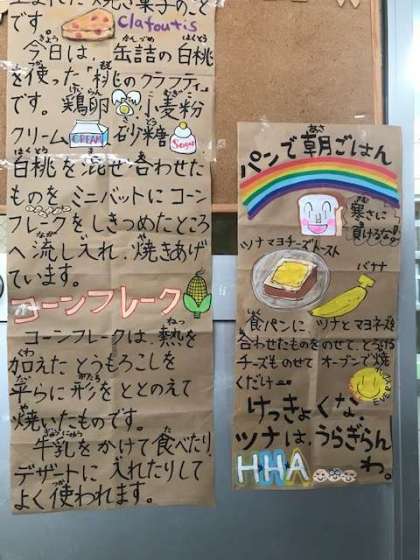 生まれた焼き菓子のこと
です Clafoutis
今日は、缶詰の白桃
を使った"桃のクラフティ"
です。鶏卵 小麦粉
クリーム CREAM 砂糖 Sugar
白桃を混ぜ合わせた
ものをミニバットにコーン
フレークをしきつめたところ
へ流し入れ、焼きあげ
ています。
コーンフレーク
コーンフレークは、熱を
加えたとうもろこしを
平らに形をととのえて
焼いたものです。
牛乳をかけて食べたり、
デザートに入れたりして
よく使われます。
パンで朝ごはん
寒さに
負けるな!
ツナマヨチーズトースト
バナナ
食パンに、ツナとマヨネーズを
合わせたものをのせて、とろける
チーズものせてオーブンで焼
くだけ
けっきょくな、
ツナは、うらぎらん
わ。
HHA